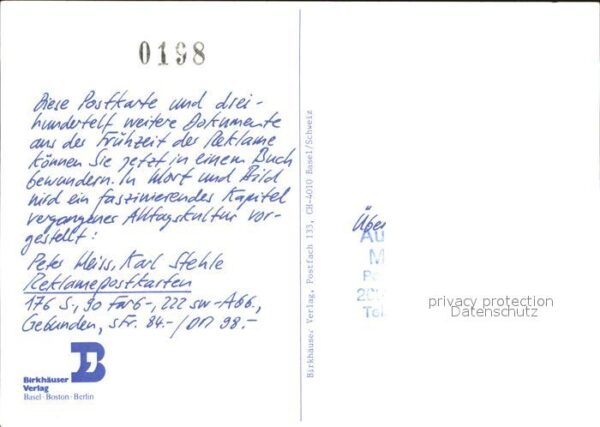 0198
Diese Postkarte und drei-
hundertelf weitere Dokumente
aus der Frühzeit der Reklame
können Sie jetzt in einem Buch
bewundern. In Wort und Bild
wird ein faszinierendes Kapitel
vergangener Alltagskultur vor-
gestellt:
Peter Weiss, Karl Stehle
Reklamepostkarten
176 S., 90 Farb-, 222 sw-Abb.,
Gebunden, sFr. 84.-/DM 98.-
B
Birkhäuser
Verlag
Basel · Boston · Berlin
Birkhäuser Verlag, Postfach 133, CH-4010 Basel/Schweiz
Über
AU
M
Tel
privacy protection
Datenschutz